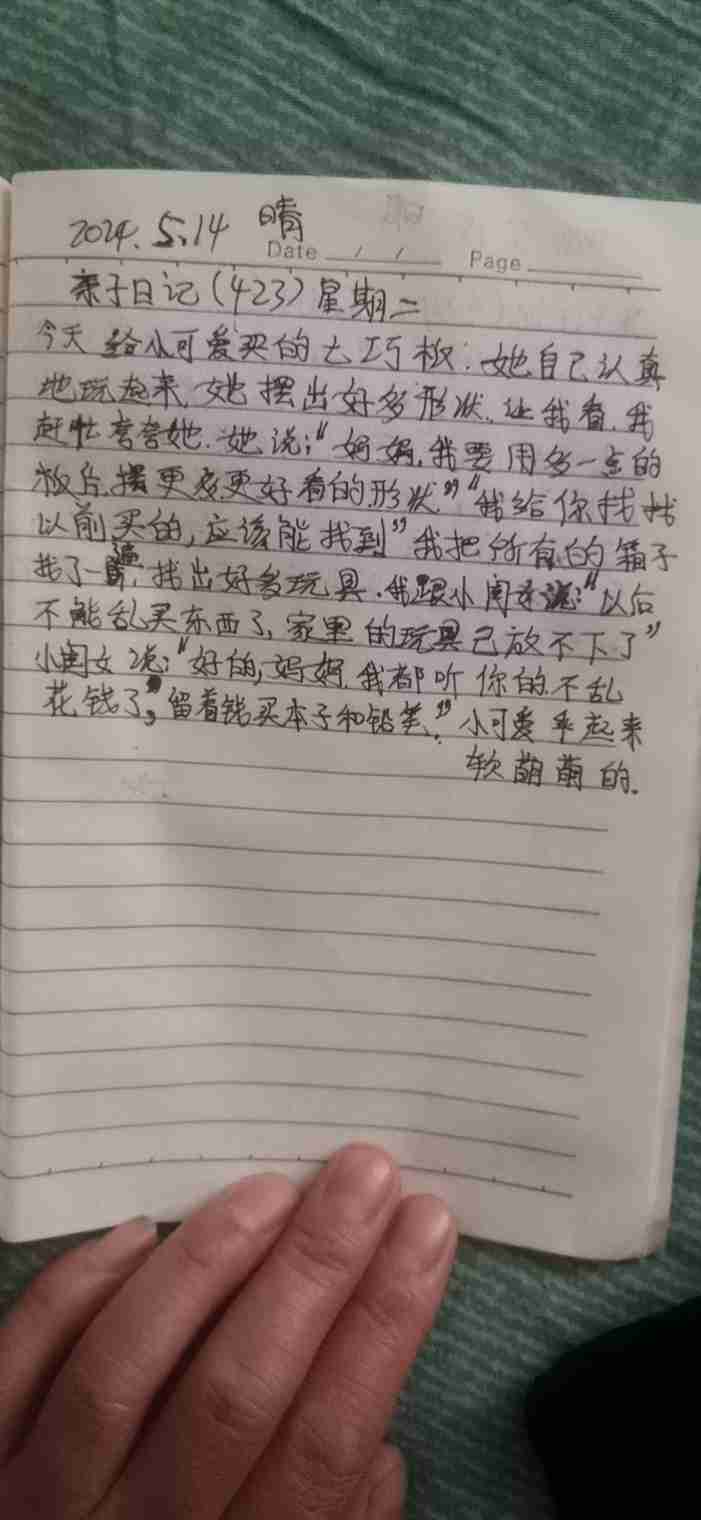 2024.5.14 晴
Date / / Page
亲子日记(423)星期二
今天给小可爱买的七巧板.她自己认真
地玩起来,她摆出好多形状.让我看.我
赶忙夸夸她.她说:“妈妈.我要用多一点的
板后摆更多更好看的形状”“我给你找找
以前买的,应该能找到”我把所有的箱子
找了一遍,找出好多玩具.我跟小闺女说:“以后
不能乱买东西了,家里的玩具已放不下了”
小闺女说:“好的,妈妈.我都听你的.不乱
花钱了,留着钱买本子和铅笔.”小可爱乖起来
软萌萌的.